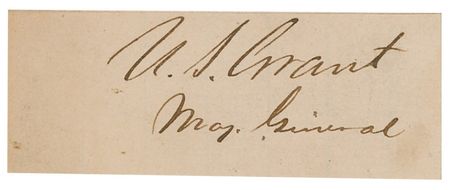 U.S. Grant
Maj. General